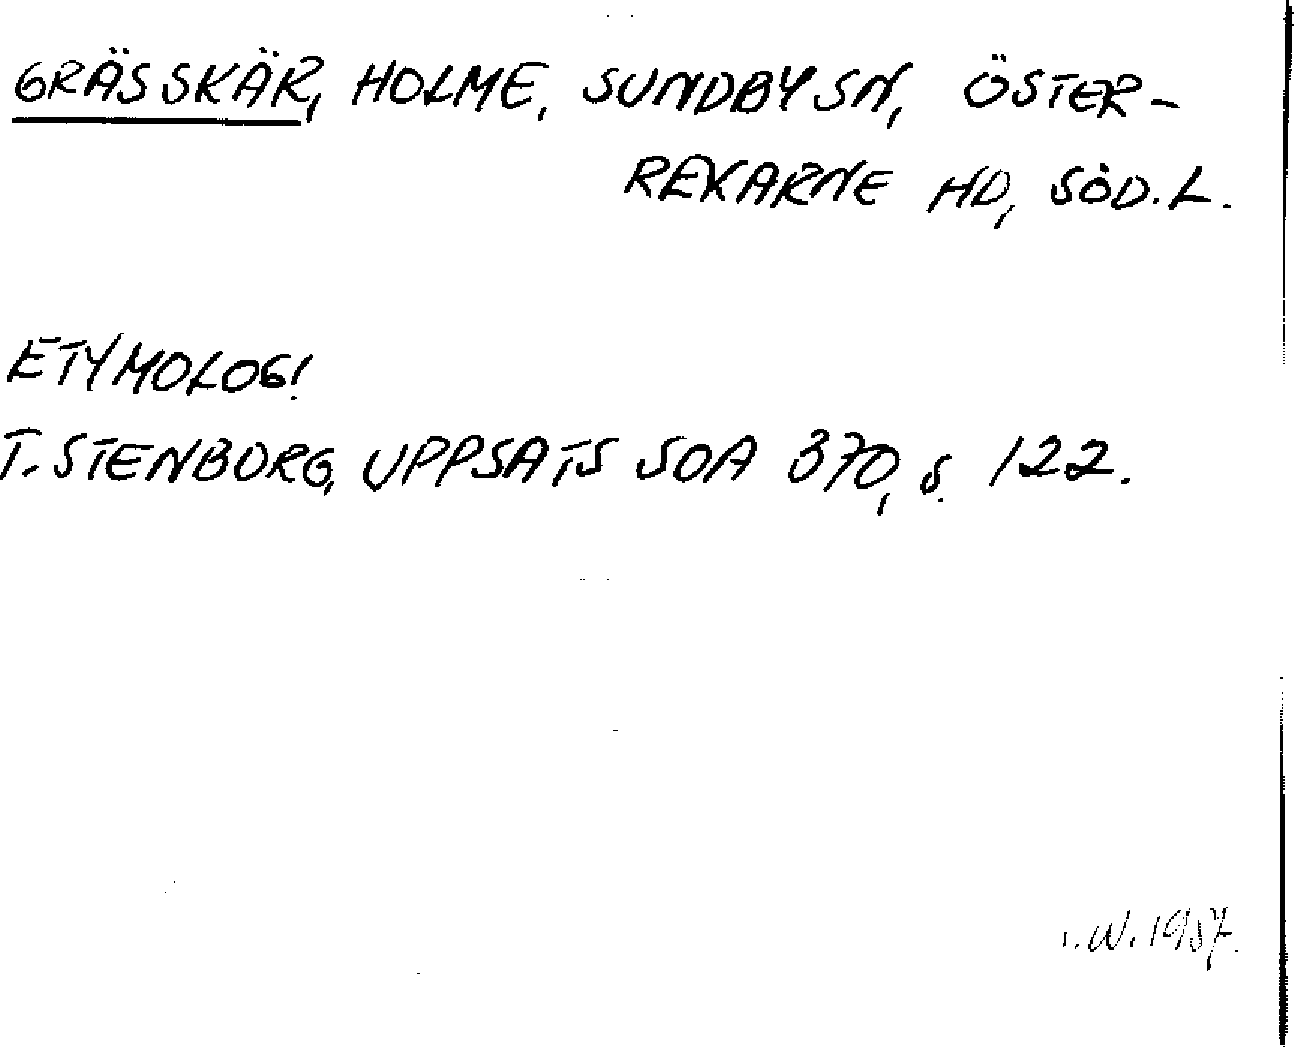 GRÄSSKÄR, HOLME, SUNDBY SN, ÖSTER-
REKARNE HD, SÖD.L.
ETYMOLOGI
T. STENBORG, UPPSATS SOA 370, s. 122.
I.W. 1987.